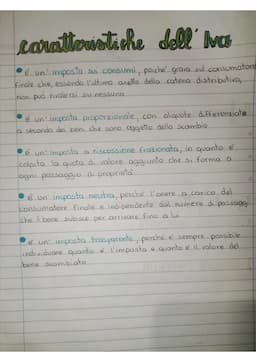 caratteristiche dell'Iva
• é un' imposta sui consumi, poiché grava sul consumatore
finale che, essendo l'ultimo anello della catena distributiva,
non può rivalersi su nessuno
• é un' imposta proporzionale, con aliquote differenziate
a seconda dei beni che sono oggetto dello scambio
• é un' imposta a riscossione frazionata, in quanto é
colpita la quota di valore aggiunto che si forma a
ogni passaggio di proprietà
• é un imposta neutra, perché l'onere a carico del
consumatore finale é indipendente dal numero di passaggi
che il bene subisce per arrivare fino a lui
• é un' imposta trasparente, perché é sempre possibile
individuare quanto é l'imposta e quanto é il valore del
bene scambiato